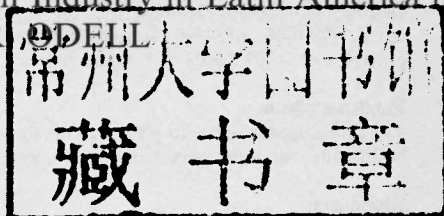 Industry in Latin America
ODELL
常州大学图书馆
藏书章